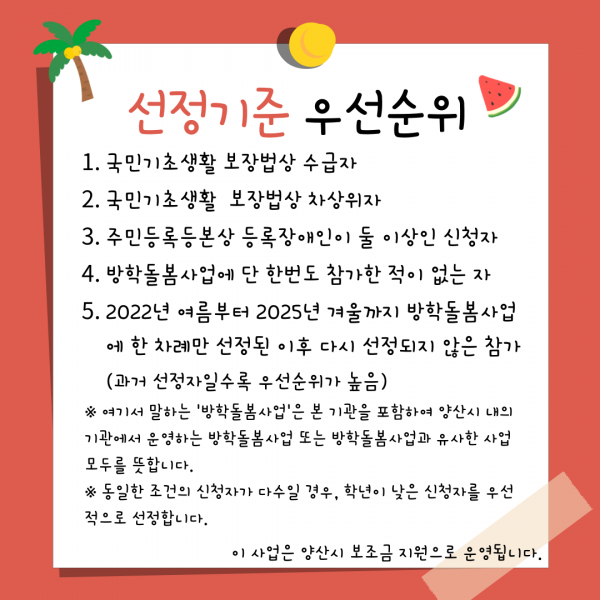 선정기준 우선순위
1. 국민기초생활 보장법상 수급자
2. 국민기초생활 보장법상 차상위자
3. 주민등록등본상 등록장애인이 둘 이상인 신청자
4. 방학돌봄사업에 단 한번도 참가한 적이 없는 자
5. 2022년 여름부터 2025년 겨울까지 방학돌봄사업
에 한 차례만 선정된 이후 다시 선정되지 않은 참가
(과거 선정자일수록 우선순위가 높음)
※ 여기서 말하는 '방학돌봄사업'은 본 기관을 포함하여 양산시 내의
기관에서 운영하는 방학돌봄사업 또는 방학돌봄사업과 유사한 사업
모두를 뜻합니다.
※ 동일한 조건의 신청자가 다수일 경우, 학년이 낮은 신청자를 우선
적으로 선정합니다.
이 사업은 양산시 보조금 지원으로 운영됩니다.